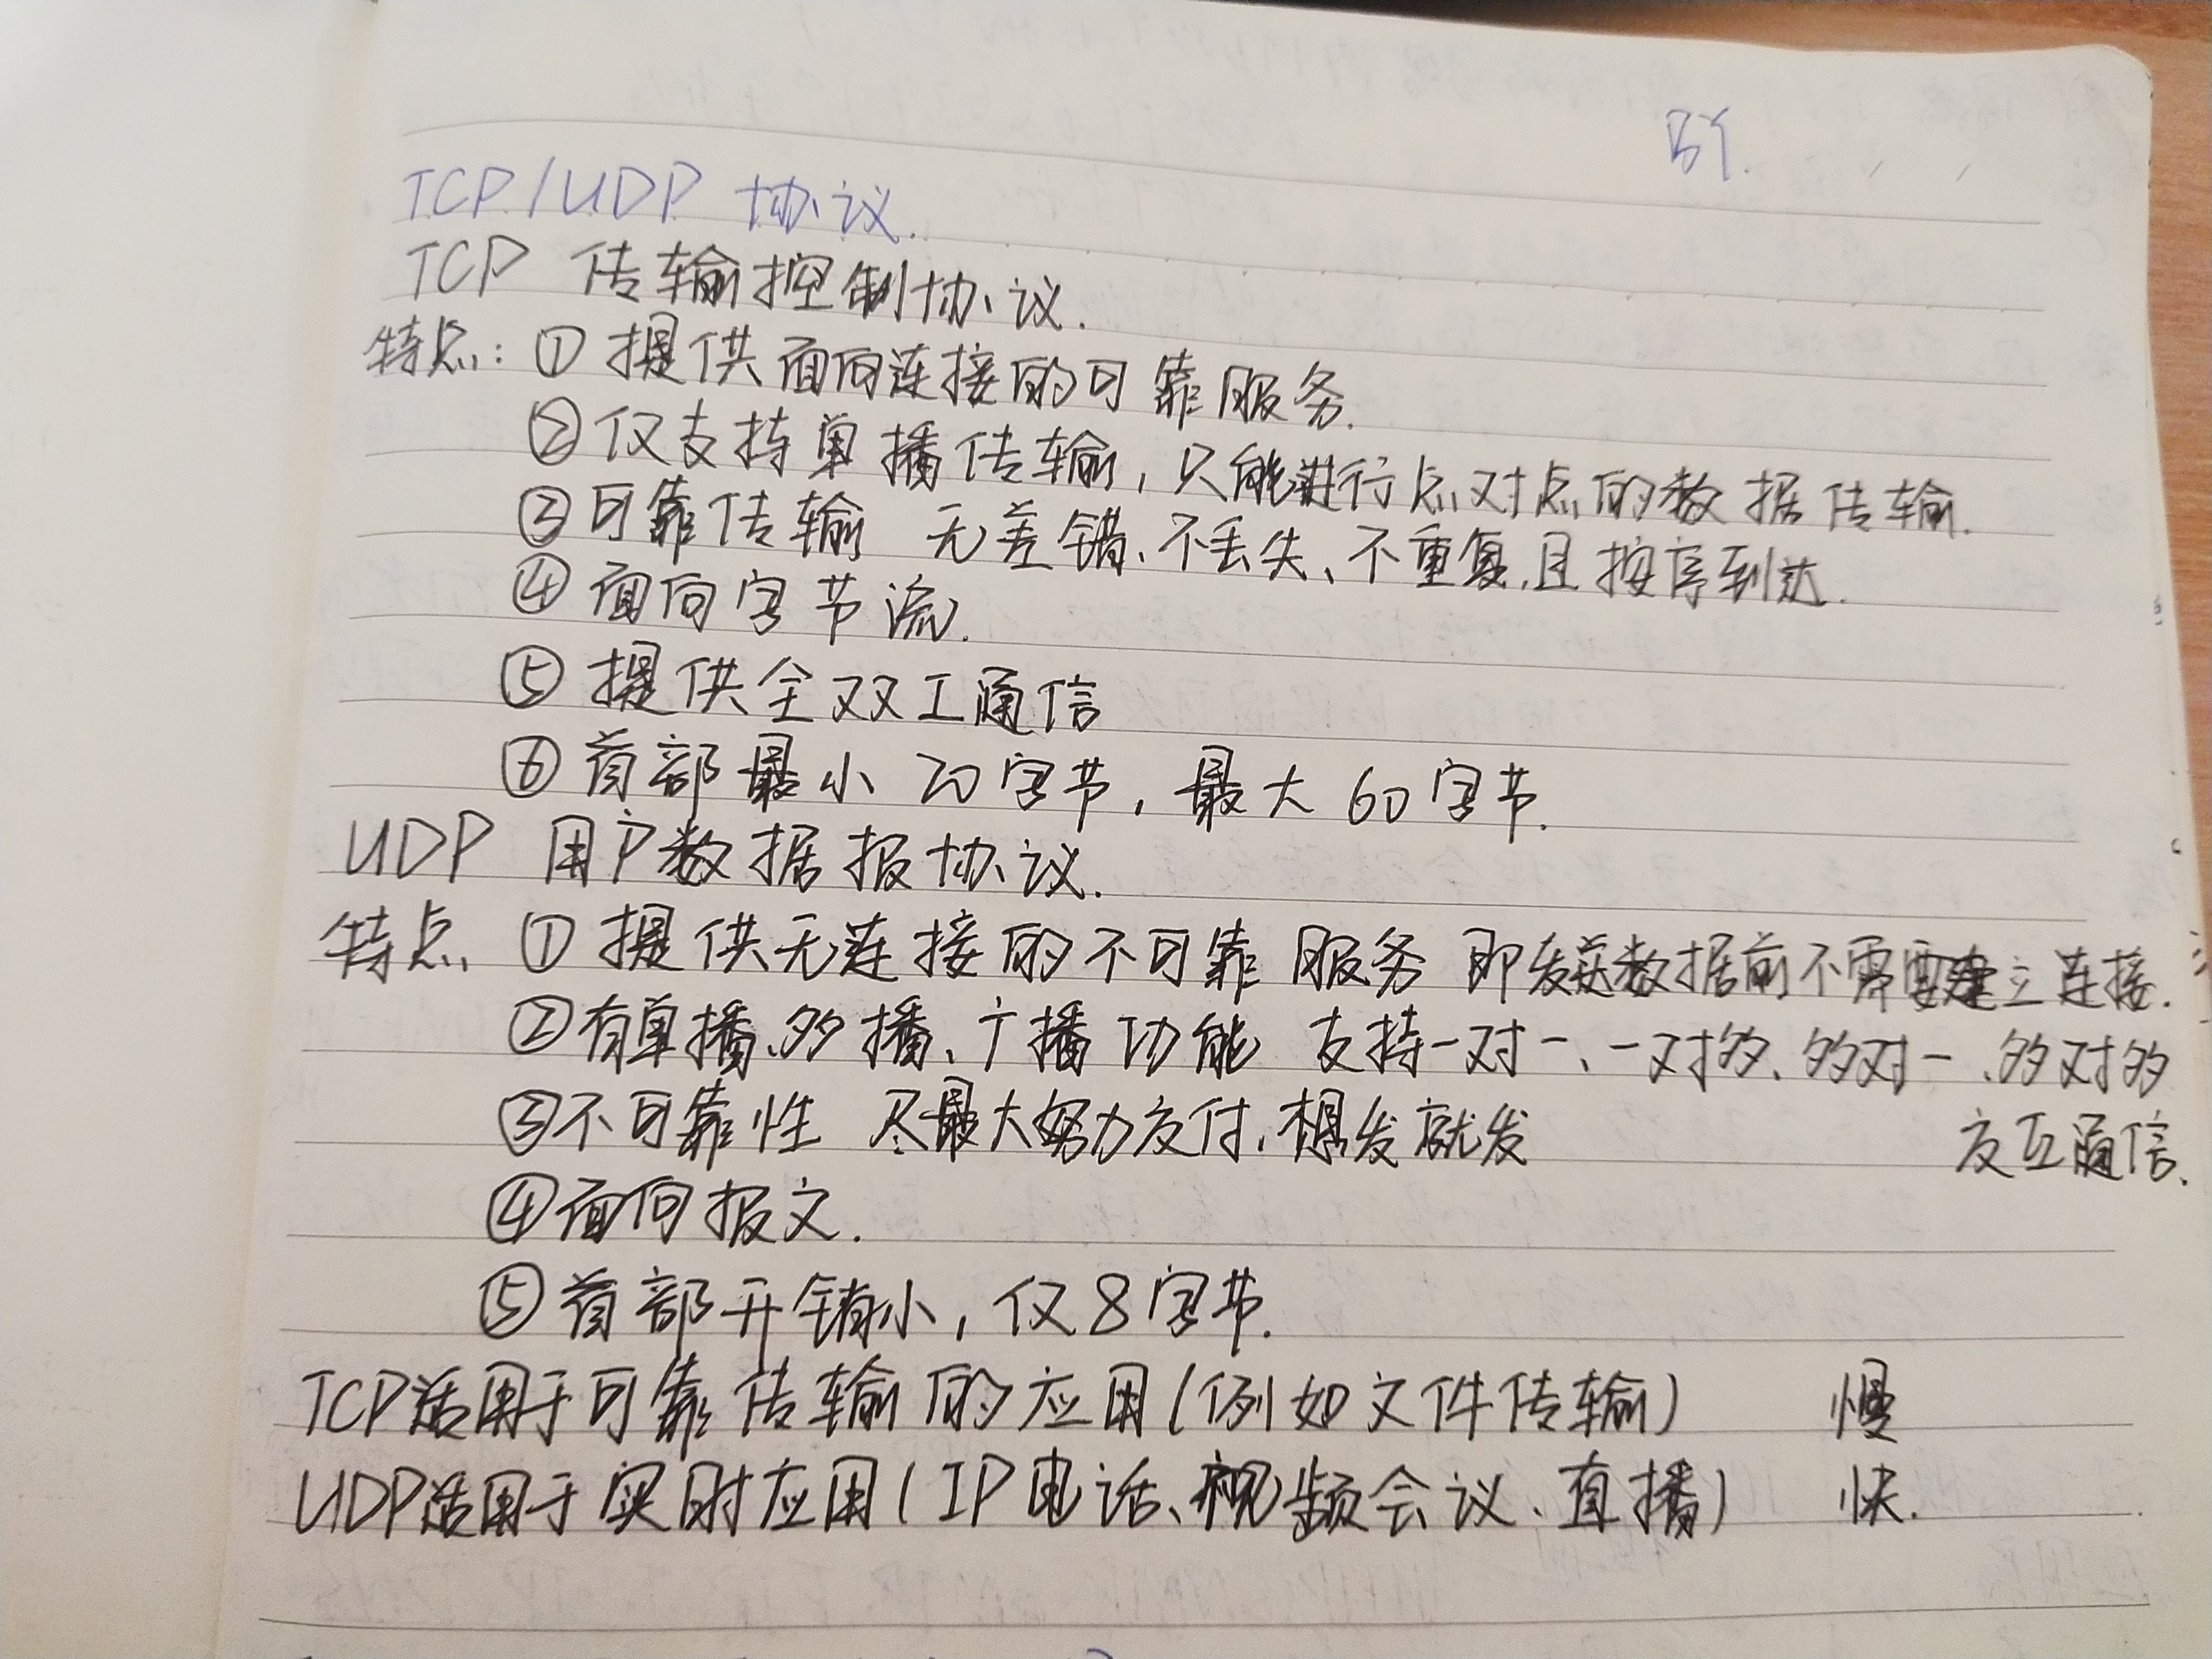 TCP/UDP 协议.
TCP 传输控制协议.
特点: ①提供面向连接的可靠服务.
②仅支持单播传输, 只能进行点对点的数据传输.
③可靠传输 无差错、不丢失、不重复,且按序到达.
④面向字节流.
⑤提供全双工通信
⑥首部最小20字节, 最大60字节.
UDP 用户数据报协议.
特点、①提供无连接的不可靠服务 即发送数据前不需要建立连接.
②有单播、多播、广播功能 支持一对一、一对多、多对一、多对多
交互通信.
③不可靠性 尽最大努力交付, 想发就发
④面向报文.
⑤首部开销小, 仅8字节.
TCP适用于可靠传输的应用(例如文件传输) 慢
UDP适用于实时应用(IP电话、视频会议、直播) 快.